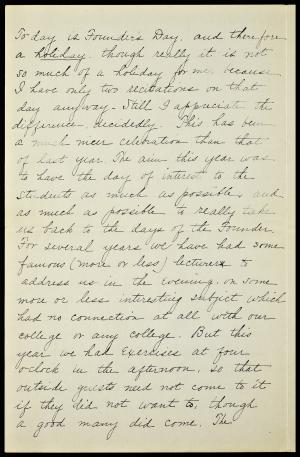 To day is Founders Day, and therefore
a holiday. though really it is not
so much of a holiday for me, because
I have only two recitations on that
day anyway - Still I appreciate the
difference, decidedly. This has been
a much nicer celebration than that
of last year. The aim this year was
to have the day of interest to the
students as much as possible, and
as much as possible to really take
us back to the days of the Founder.
For several years we have had some
famous (more or less) lecturers to
address us in the evening. on some
more or less interesting subject which
had no connection at all with our
college or any college. But this
year we had Exercises at four
o'clock in the afternoon, so that
outside guests need not come to it
if they did not want to, though
a good many did come. The